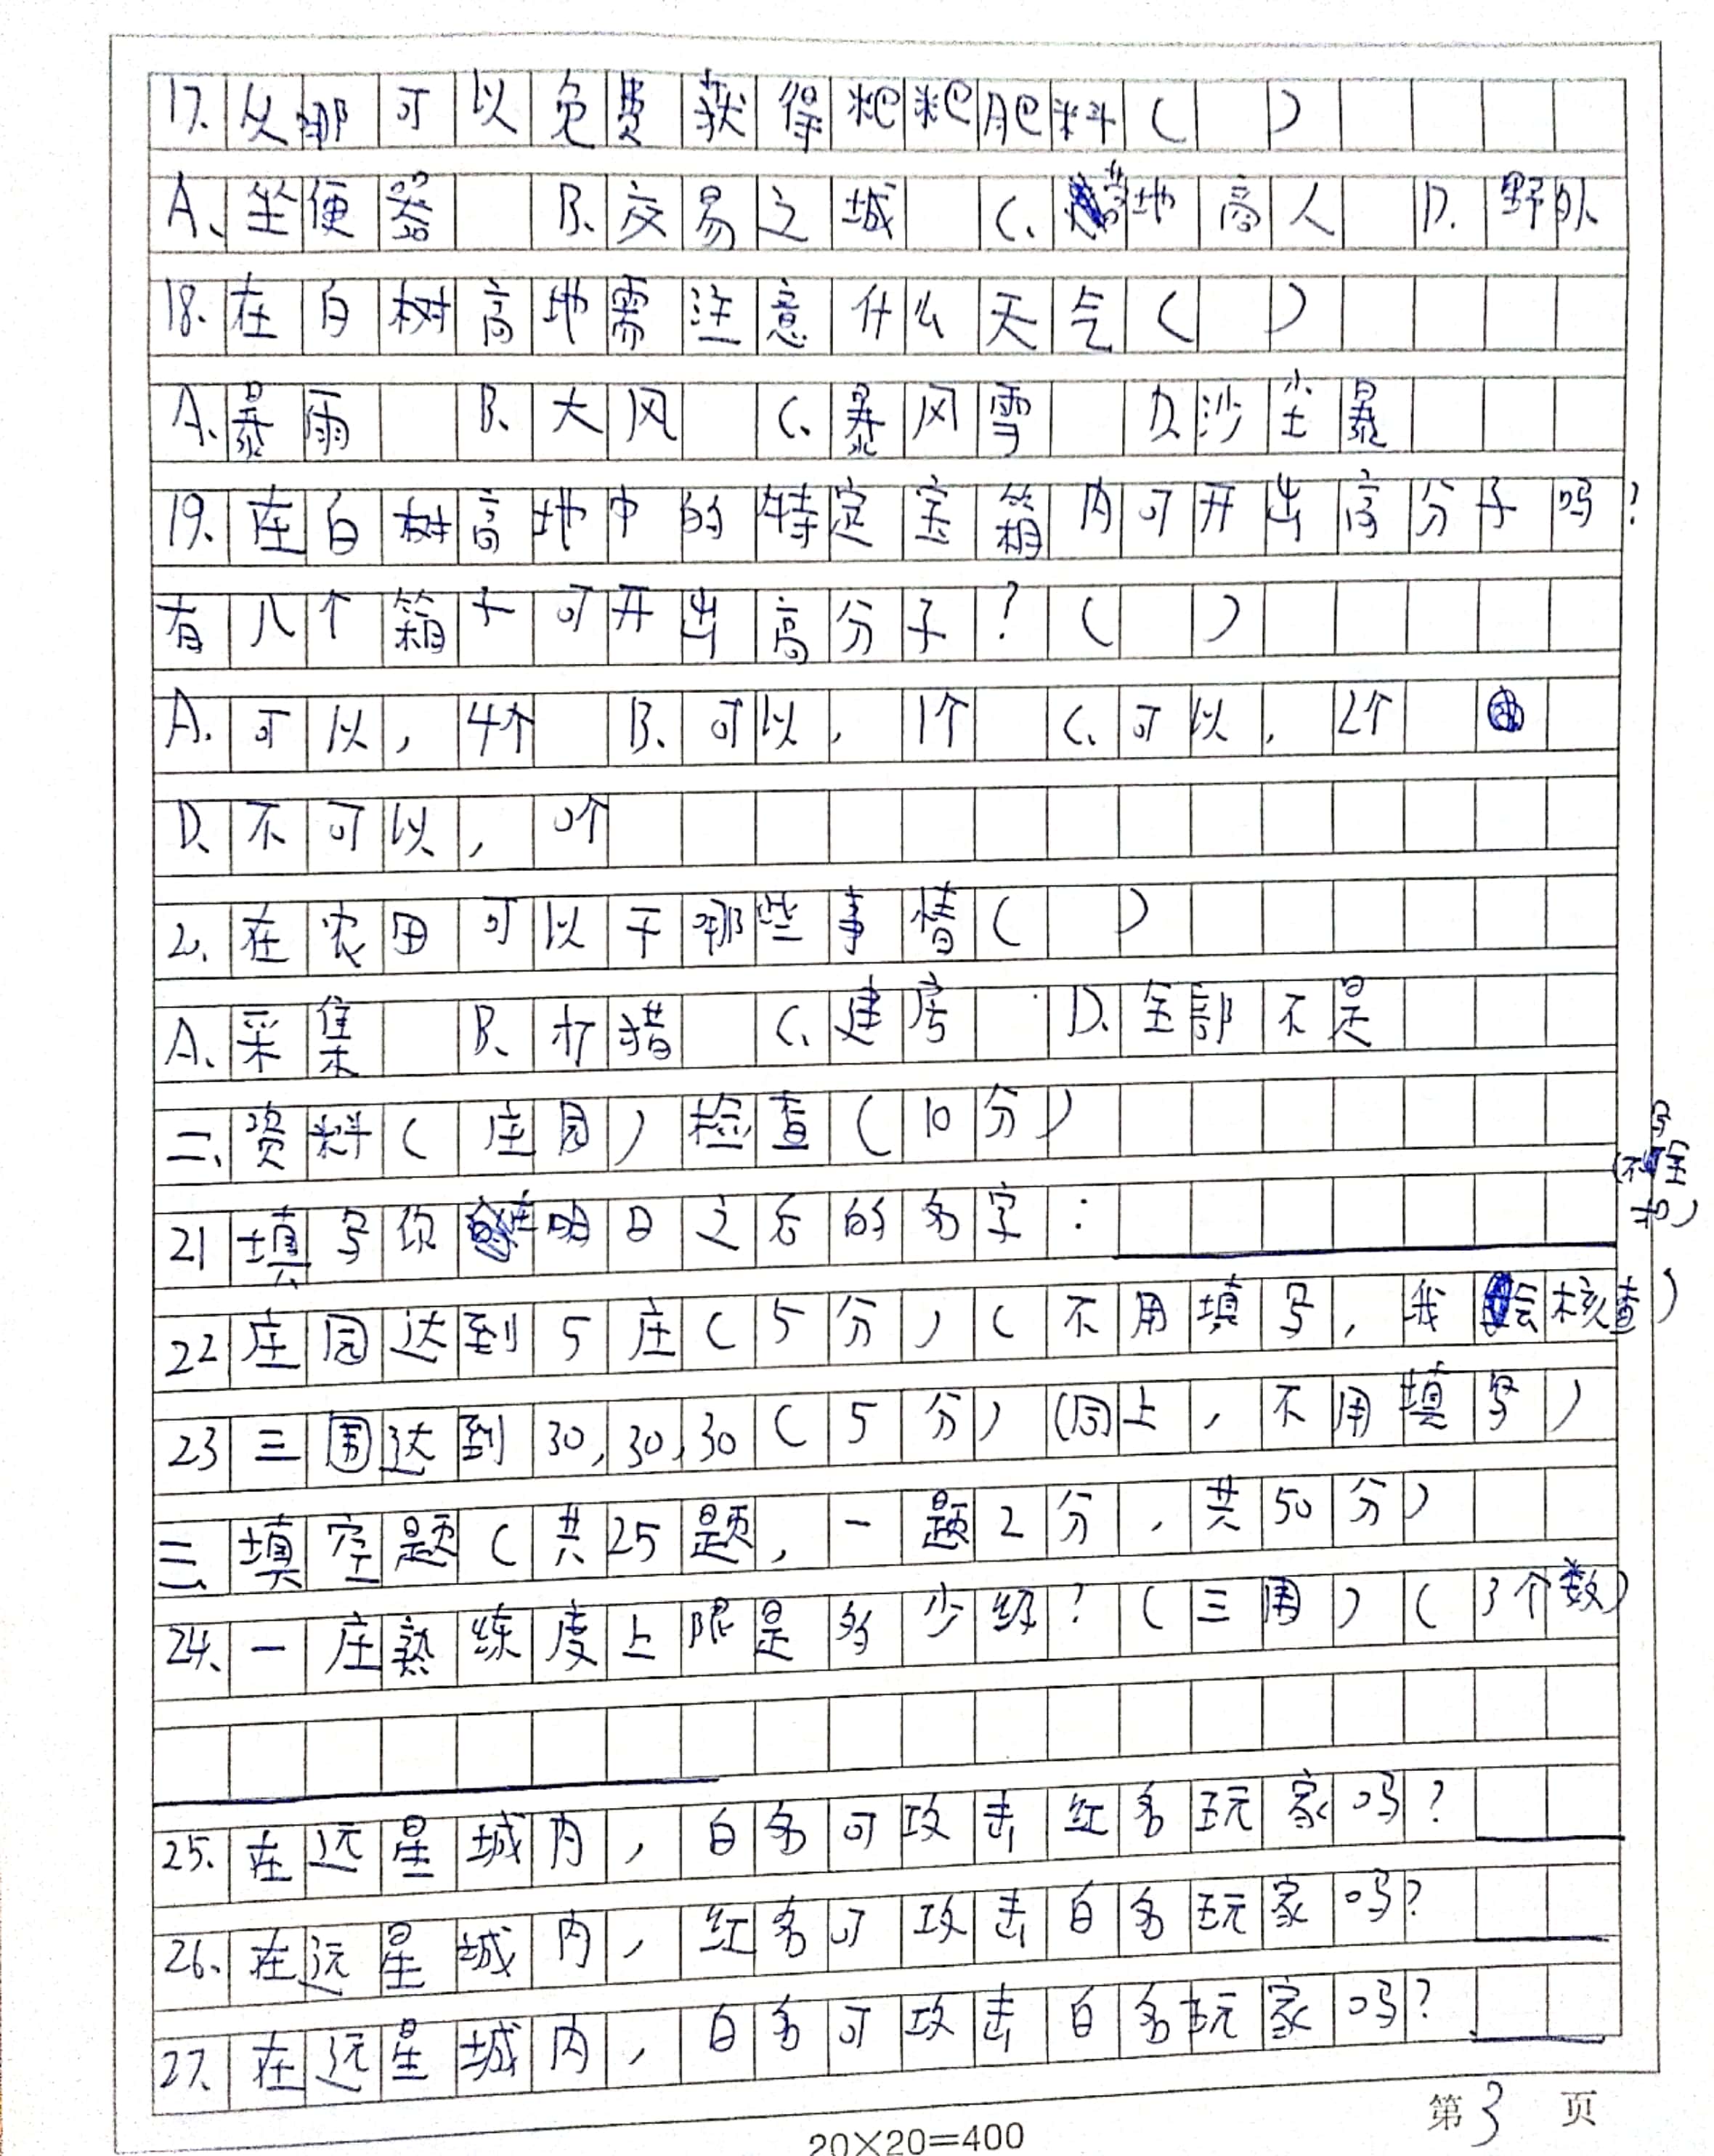 17.从哪可以免费获得粑粑肥料（ ）
A、坐便器 B.交易之城 C.营地商人 D.野外
18.在白树高地需注意什么天气（ ）
A、暴雨 B、大风 C、暴风雪 D.沙尘暴
19.在白树高地中的特定宝箱内可开出高分子吗?
有几个箱子可开出高分子?（ ）
A.可以，4个 B.可以，1个 C.可以，2个
D.不可以，0个
20.在农田可以干哪些事情（ ）
A、采集 B、打猎 C、建房 D.全部不是
二、资料（庄园）检查（10分）
21填写你在明日之后的名字：
(不写全扣)
22庄园达到5庄（5分）（不用填写，我会核查）
23三围达到30,30,30（5分）(同上，不用填写）
三、填空题（共25题，一题2分，共50分）
24、一庄熟练度上限是多少级?（三围）（3个数）
25.在远星城内，白名可攻击红名玩家吗?
26、在远星城内，红名可攻击白名玩家吗?
27、在远星城内，白名可攻击白名玩家吗?
第3页
20×20=400